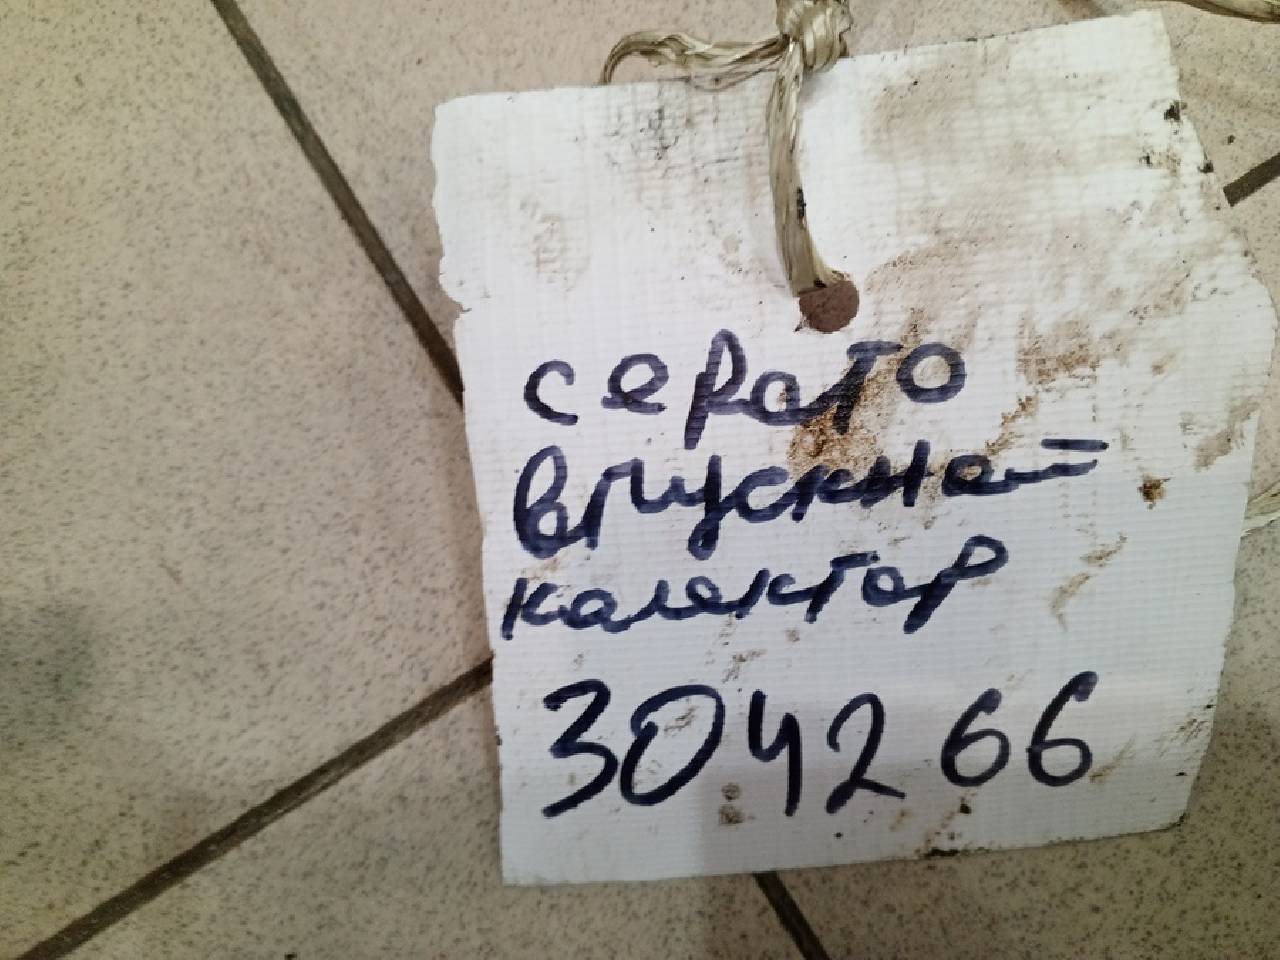 серато
впускной
калектор
304266